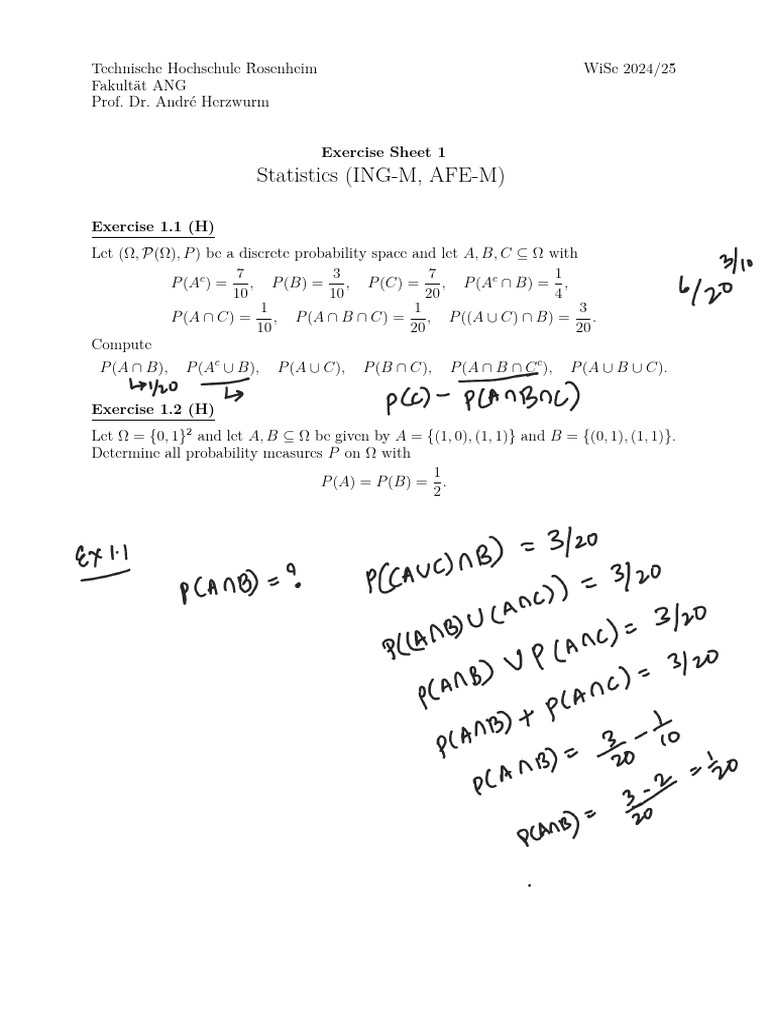 Technische Hochschule Rosenheim WiSe 2024/25
Fakultät ANG
Prof. Dr. André Herzwurm
Exercise Sheet 1
Statistics (ING-M, AFE-M)
Exercise 1.1 (H)
Let (Ω, 𝒫(Ω), P) be a discrete probability space and let A, B, C ⊆ Ω with
3/10
6/20
P(Aᶜ) = 7/10, P(B) = 3/10, P(C) = 7/20, P(Aᶜ ∩ B) = 1/4,
P(A ∩ C) = 1/10, P(A ∩ B ∩ C) = 1/20, P((A ∪ C) ∩ B) = 3/20.
Compute
P(A ∩ B), P(Aᶜ ∪ B), P(A ∪ C), P(B ∩ C), P(A ∩ B ∩ Cᶜ), P(A ∪ B ∪ C).
↳1/20 ↳ P(C) − P(A∩B∩C)
Exercise 1.2 (H)
Let Ω = {0, 1}² and let A, B ⊆ Ω be given by A = {(1, 0), (1, 1)} and B = {(0, 1), (1, 1)}.
Determine all probability measures P on Ω with
P(A) = P(B) = 1/2.
Ex 1.1
P(A∩B) = ?
P((A∪C)∩B) = 3/20
P((A∩B)∪(A∩C)) = 3/20
P(A∩B) ∪ P(A∩C) = 3/20
P(A∩B) + P(A∩C) = 3/20
P(A∩B) = 3/20 − 1/10
P(A∩B) = 3−2/20 = 1/20